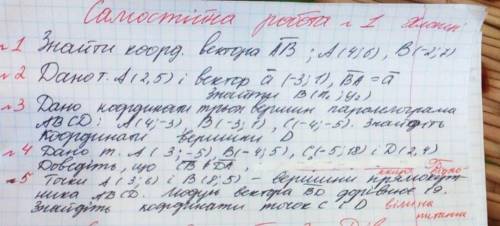 Самостійна робота №1
№1 Знайти коорд. вектора AB ; A(4;6), B(-2;7)
№2 Дано т. A(2,5) і вектор a (-3;1), BA = a
Знайти B(x₁; y₂)
№3 Дано координати трьох вершин паралелограма
ABCD: A(4;-3) B(-3;1), C(-4;-5). Знайдіть
Координати вершини D
№4 Дано т. A(3;-5) B(-4;5), C(-5;18) і D(2,4)
Доведіть, що
5 Точки A(3;6) і B(8;5) – вершини прямокут-
ника ABCD. Модуль вектора BD дорівнює 19.
Знайдіть координати точок C і D
питання